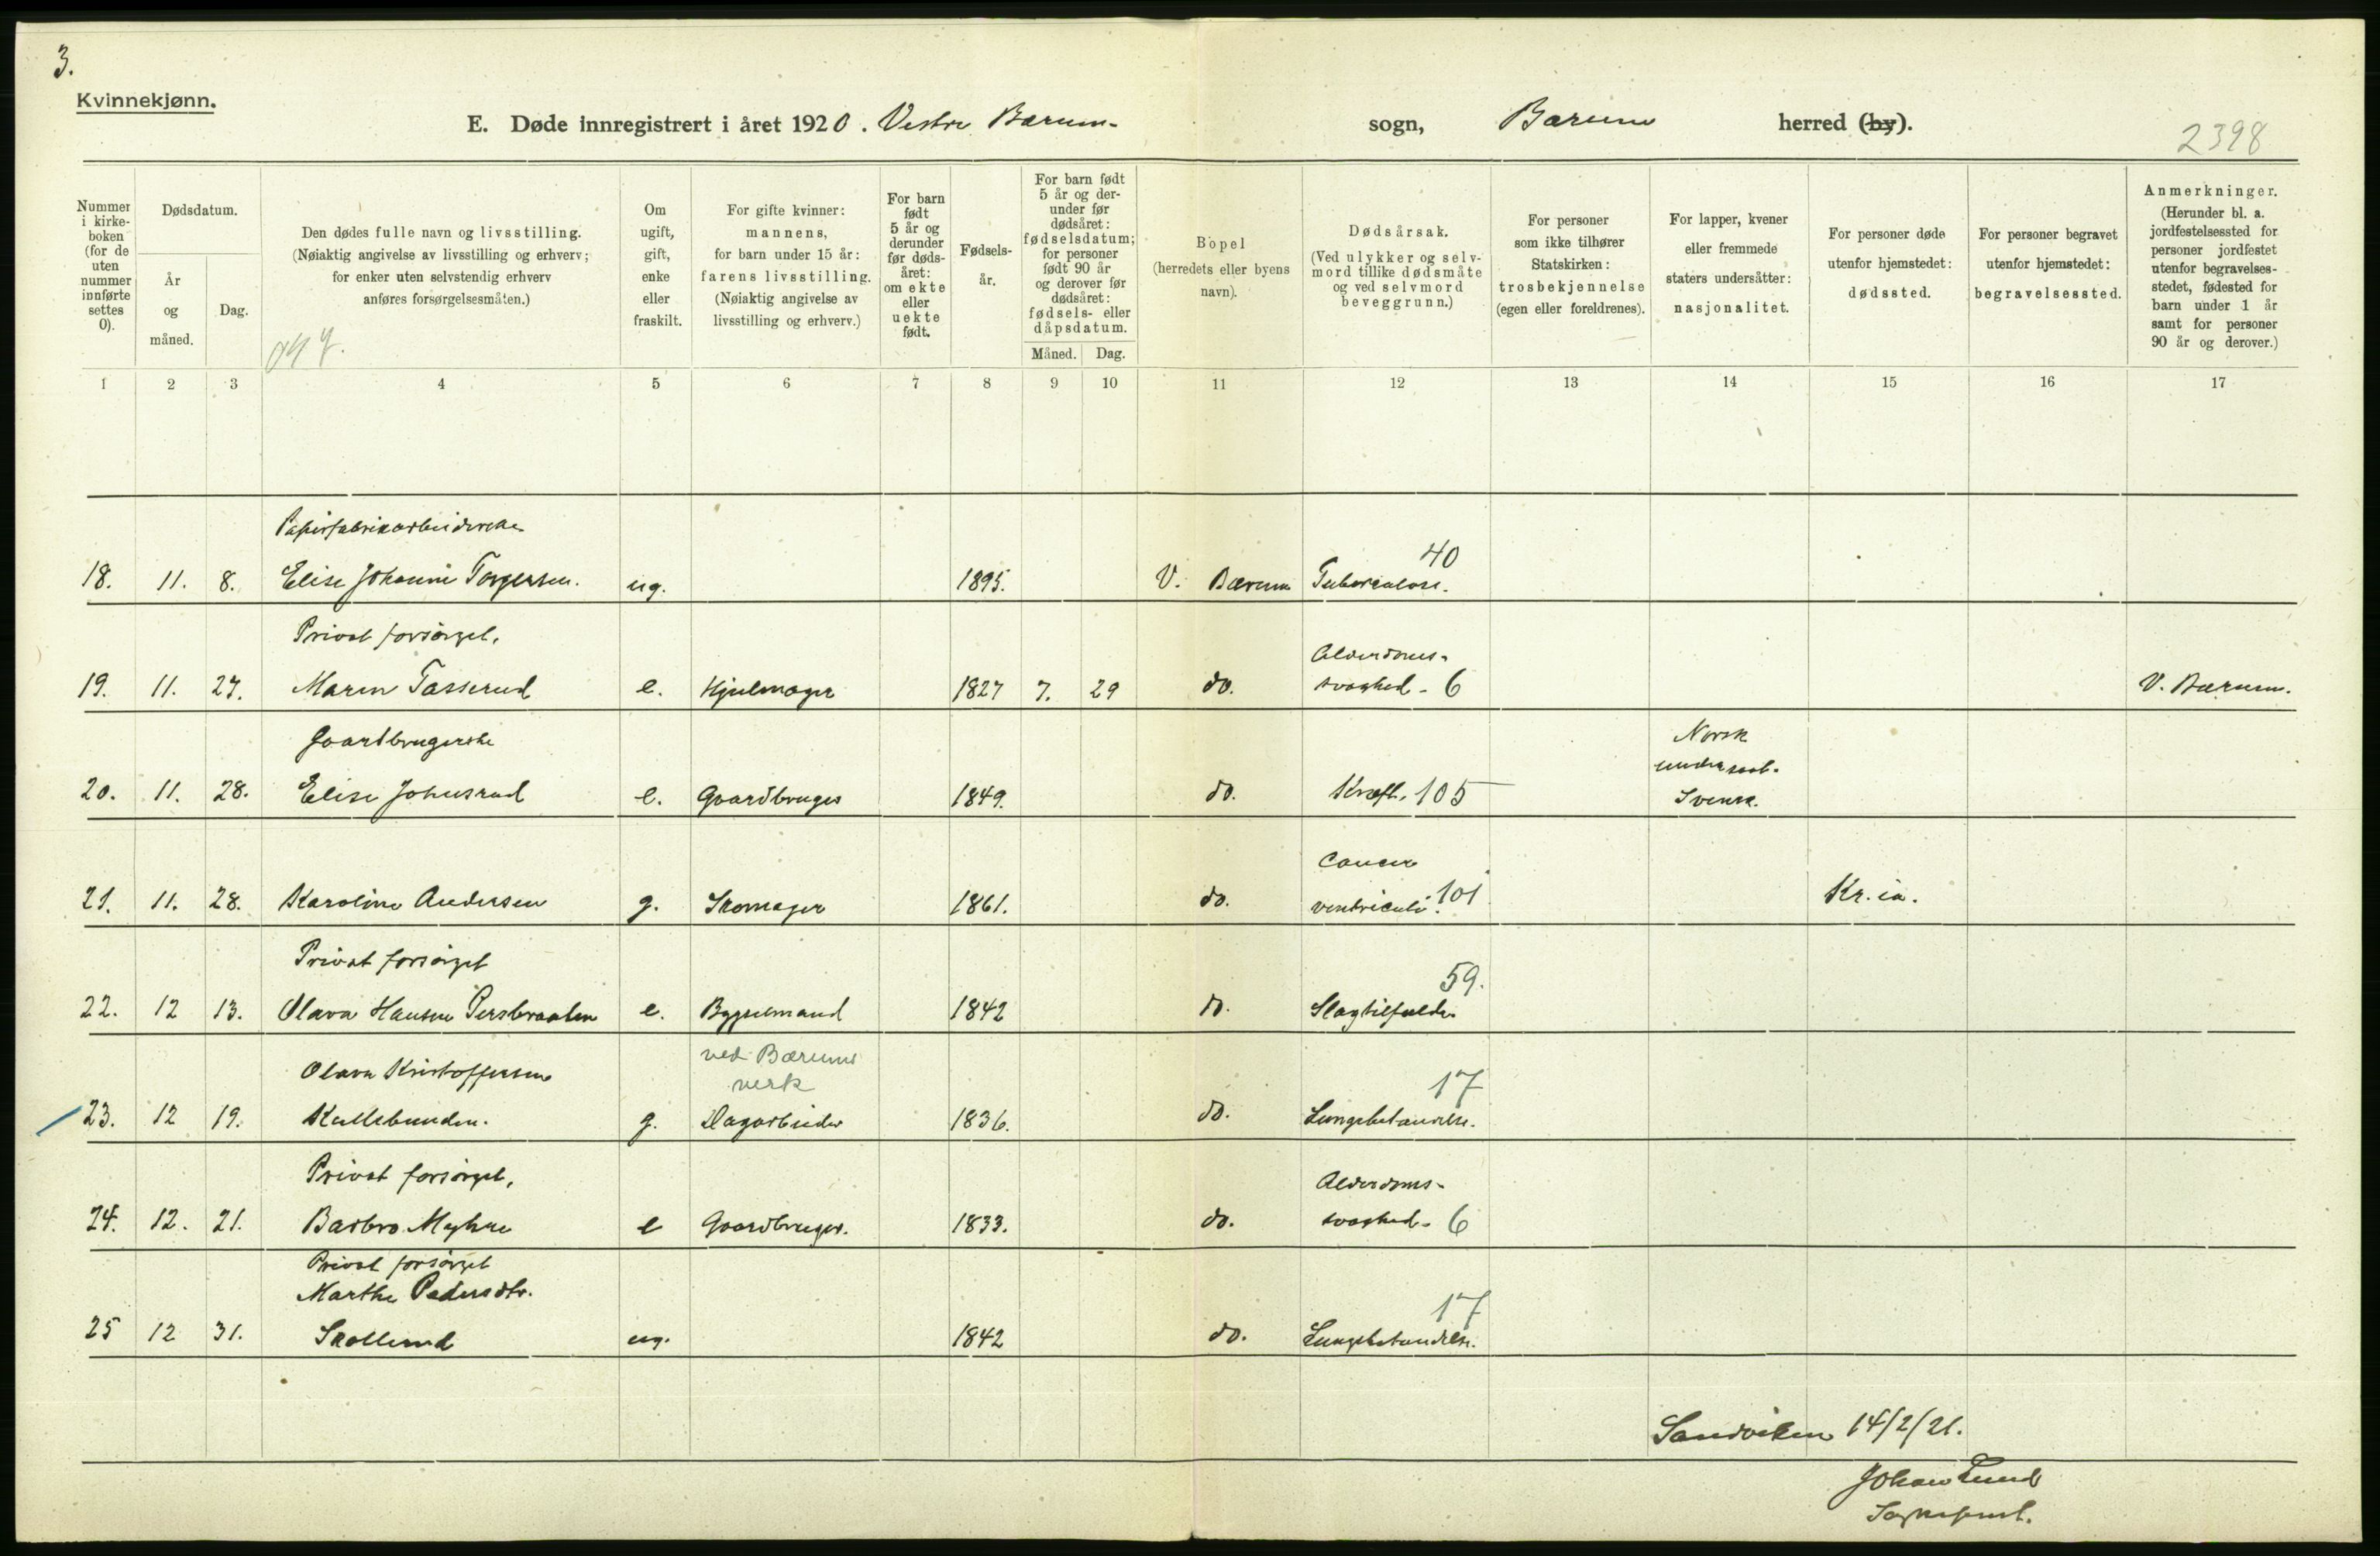 3.
Kvinnekjønn.
E. Døde innregistrert i året 1920. Vestre Bærum- sogn, Bærum herred (by).
2398
Nummer i kirke-boken (for de uten nummer innførte settes 0).
Dødsdatum.
År og måned.
Dag.
Den dødes fulle navn og livsstilling.
(Nøiaktig angivelse av livsstilling og erhverv;
for enker uten selvstendig erhverv
anføres forsørgelsesmåten.)
Om ugift, gift, enke eller fraskilt.
For gifte kvinner:
mannens,
for barn under 15 år:
farens livsstilling.
(Nøiaktig angivelse av
livsstilling og erhverv.)
For barn født 5 år og derunder før døds-året: om ekte eller uekte født.
Fødsels-år.
For barn født 5 år og der-under før dødsåret: fødselsdatum; for personer født 90 år og derover før dødsåret: fødsels- eller dåpsdatum.
Måned. Dag.
Bopel
(herredets eller byens
navn).
Dødsårsak.
(Ved ulykker og selv-
mord tillike dødsmåte
og ved selvmord
beveggrunn.)
For personer
som ikke tilhører
Statskirken:
trosbekjennelse
(egen eller foreldrenes).
For lapper, kvener
eller fremmede
staters undersåtter:
nasjonalitet.
For personer døde
utenfor hjemstedet:
dødssted.
For personer begravet
utenfor hjemstedet:
begravelsessted.
Anmerkninger.
(Herunder bl. a.
jordfestelsessted for
personer jordfestet
utenfor begravelses-
stedet, fødested for
barn under 1 år
samt for personer
90 år og derover.)
1 2 3 4 5 6 7 8 9 10 11 12 13 14 15 16 17
Papirfabrikarbeiderske
40
18. 11. 8. Elise Johanne Torgersen. ug. 1895. V. Bærum Tuberculose.
Privat forsørget.
Alderdoms-
19. 11. 27. Maren Tasserud e. Hjulmager 1827 7. 29 do. svaghed - 6 V. Bærum.
Gaardbrugerske
Norsk
undersaat.
20. 11. 28. Elise Johnsrud e. Gaardbruger 1849. do. Kræft. 105 Svensk.
Cancer
21. 11. 28. Karoline Andersen g. Skomager 1861. do. ventriculi. 101 Kr.ia.
Privat forsørget
59.
22. 12 13. Olava Hansen Persbraaten e. Bygselmand 1842 do. Slagtilfælde.
ved Bærums
verk
Olava Kristoffersen
17
23. 12 19. Kullebunden. g. Dagarbeider 1836. do. Lungebetændelse.
Privat forsørget.
Alderdoms-
24. 12. 21. Barbro Myhre e Gaardbruger. 1833. do. svaghed - 6
Privat forsørget
Marthe Pedersdtr.
17
25 12 31. Skollerud ug. 1842 do. Lungebetændelse.
Sandviken 14/2/21.
Johan Lund
Sogneprest.